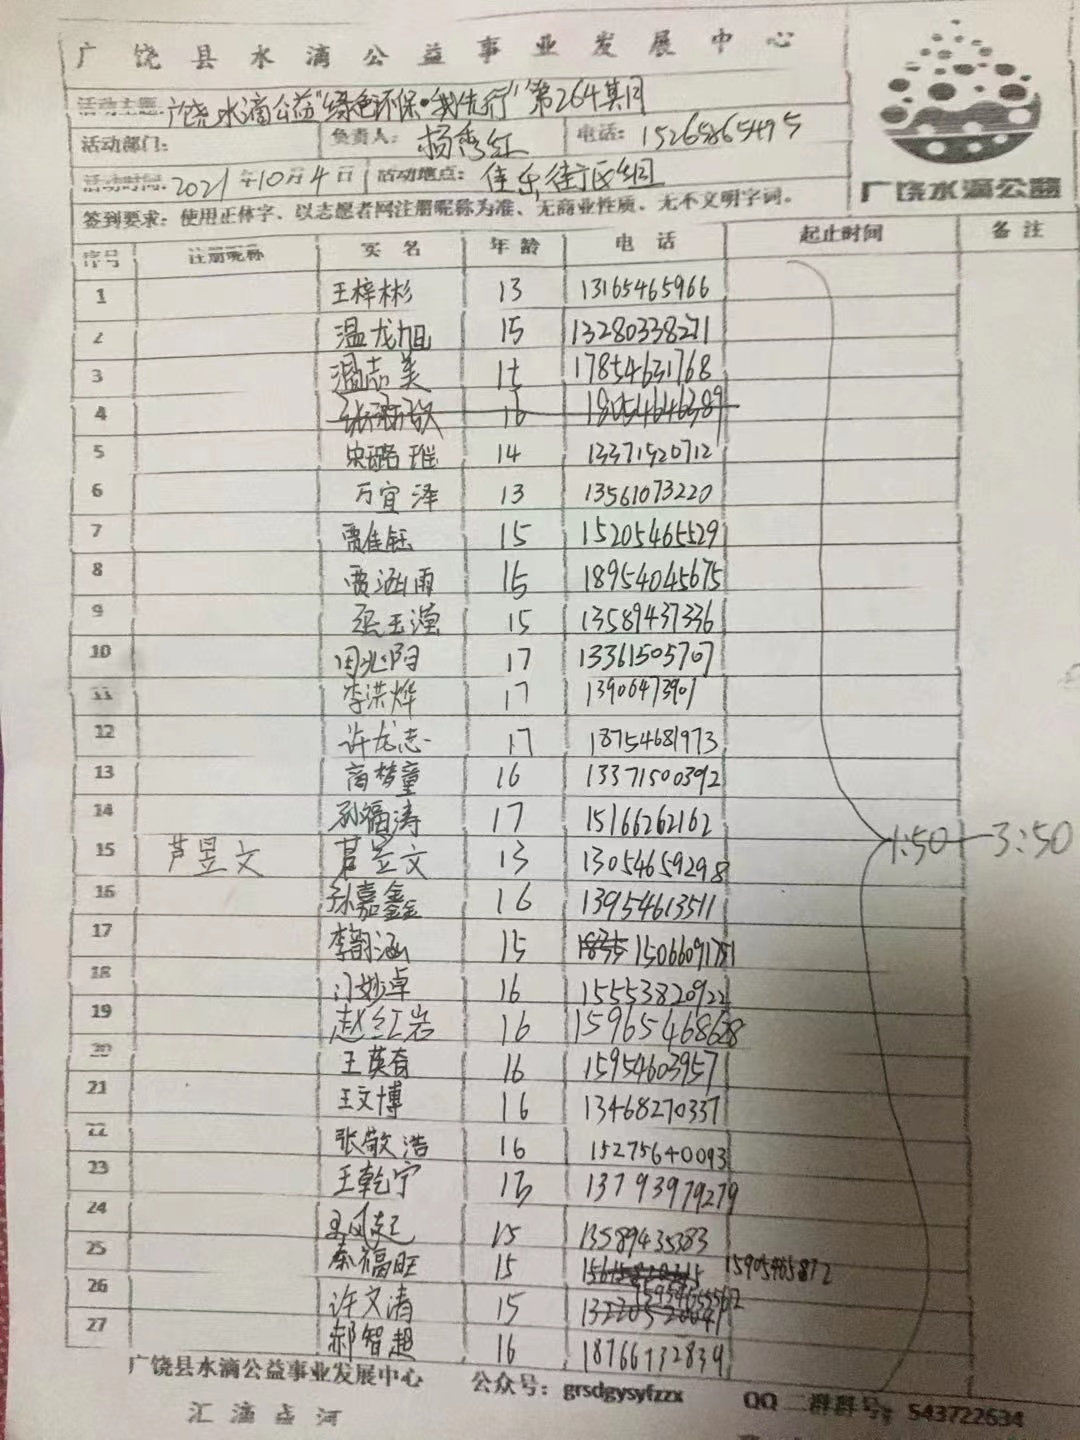 广饶县水滴公益事业发展中心
活动主题:广饶水滴公益"绿色环保·我先行"第264期
活动部门: 负责人:杨秀红 电话:15265865495
活动时间:2021年10月4日 活动地点:佳乐街区
签到要求:使用正体字、以志愿者网注册昵称为准、无商业性质、无不文明字词。
广饶水滴公益
序号 注册昵称 实名 年龄 电话 起止时间 备注
1 王梓彬 13 13165465966
2 温龙旭 15 13280338271
3 温志美 15 17854631768
4 16 18054646389
5 14 13371520712
6 万宜泽 13 13561073220
7 贾佳钰 15 15205465529
8 贾涵雨 15 18954045675
9 张玉滢 15 13589437336
10 周兆阳 17 13361505707
11 李洪烨 17 13906473901
12 许龙志 17 18754681973
13 商梦童 16 13371500392
14 孙福涛 17 15166262162
15 芦昱文 芦昱文 13 13054659298 1:50—3:50
16 孙嘉鑫 16 13954613511
17 李韵涵 15 15066091751
18 门妙卓 16 15553820922
19 赵红岩 16 15965468628
20 王英奇 16 15954603957
21 王文博 16 13468270337
22 张敬浩 16 15275640093
23 王乾宁 13793979279
24 王风起 15 13589435383
25 秦福旺 15 15905465872
26 许文涛 15
27 郝智超 16 18766732839
广饶县水滴公益事业发展中心 公众号:grsdgysyfzzx QQ二群群号:543722634
汇滴成河